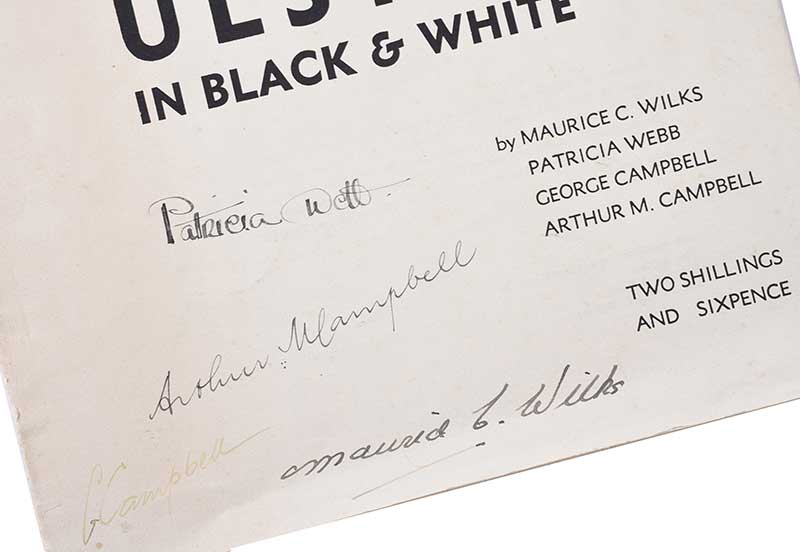 IN BLACK & WHITE
by MAURICE C. WILKS
PATRICIA WEBB
GEORGE CAMPBELL
ARTHUR M. CAMPBELL
Patricia Webb
TWO SHILLINGS
AND SIXPENCE
Arthur M Campbell
Maurice C. Wilks
G Campbell